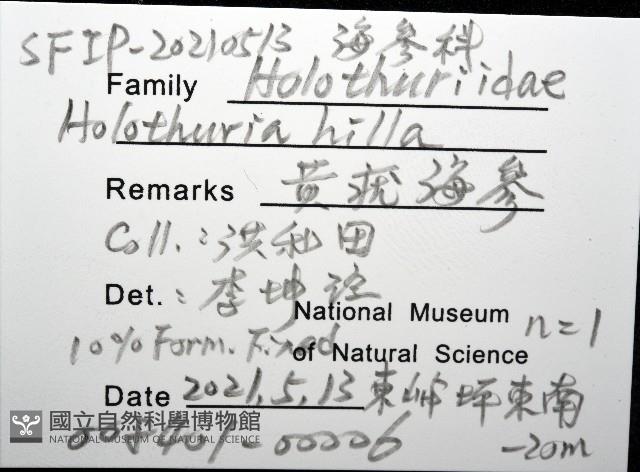 SFIP-20210513 海參科
Family Holothuriidae
Holothuria hilla
Remarks 黃疣海參
Coll.: 洪和田
Det.: 李坤瑄
National Museum n=1
10% Form. Fixed of Natural Science
Date 2021.5.13 東岬坪東南
國立自然科學博物館
NATIONAL MUSEUM OF NATURAL SCIENCE
-00006 -20m